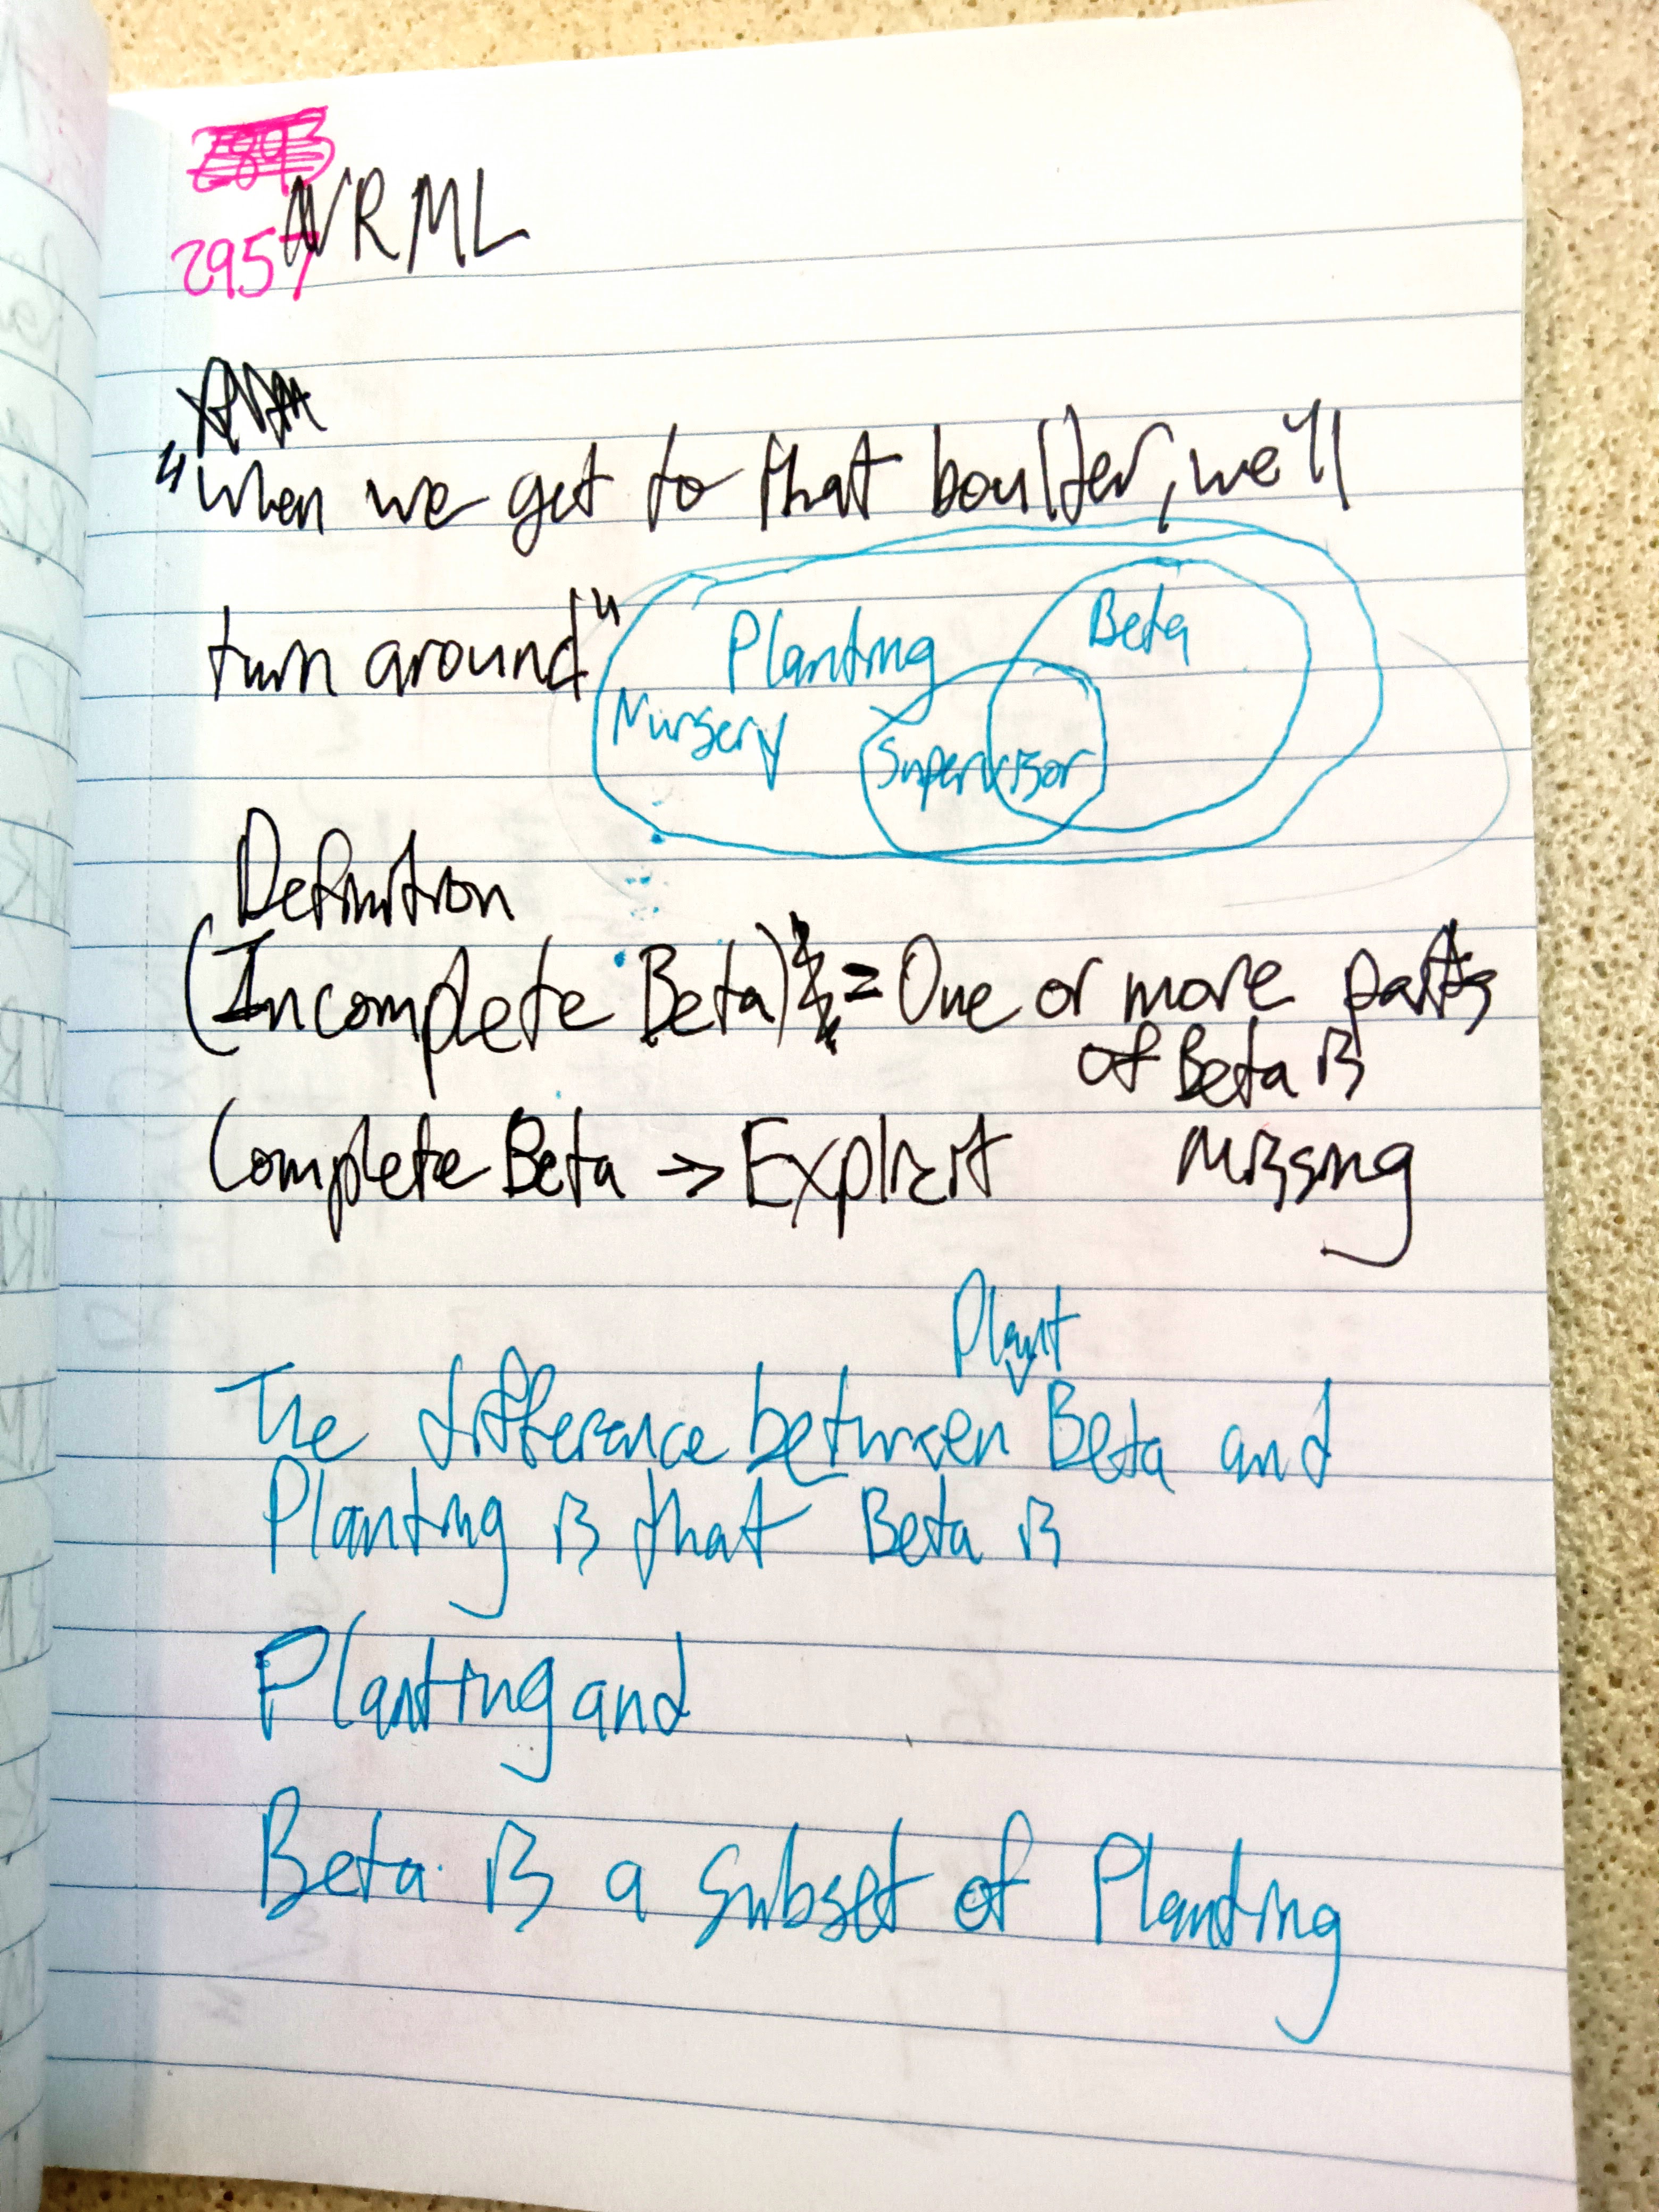 2957 NRML
"When we get to that boulder, we'll
turn around"
Planting
Beta
Nursery
Supervisor
Definition
(Incomplete Beta) = One or more parts
of Beta is
missing
Complete Beta → Explicit
Plant
The difference between Beta and
Planting is that Beta is
Planting and
Beta is a subset of Planting